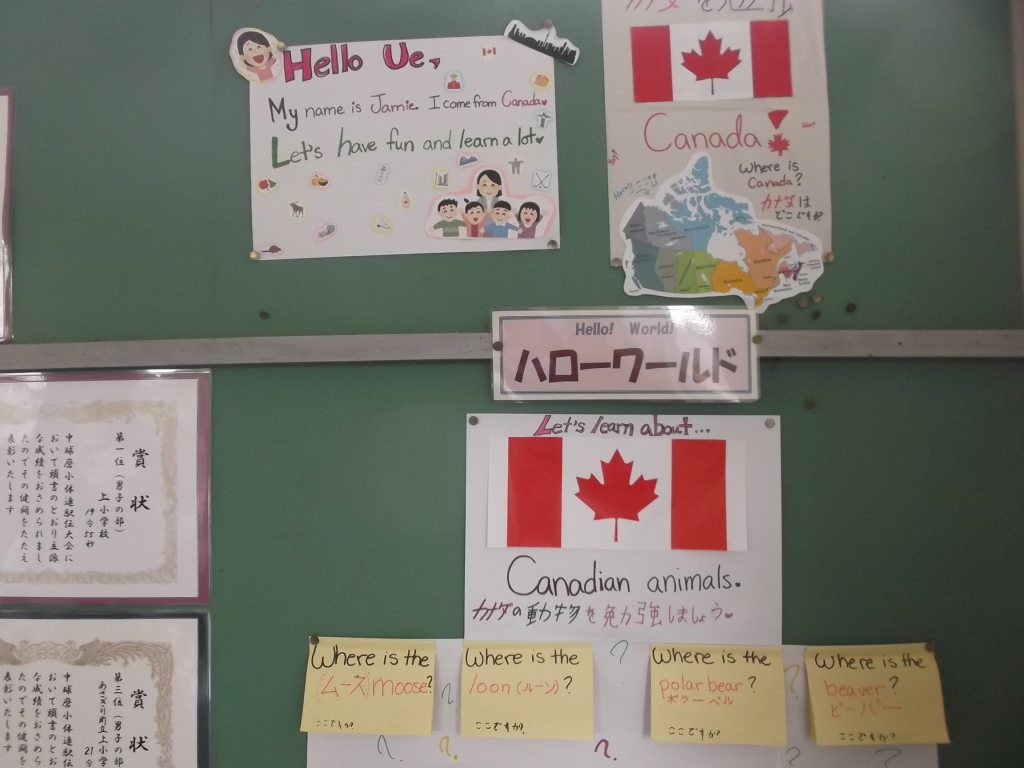 Hello Ue,
My name is Jamie. I come from Canada♥
Let's have fun and learn a lot♥
Canada
Where is
Canada?
カナダは
どこですか?
Hello! World!
ハローワールド
Let's learn about...
Canadian animals.
カナダの動物を勉強しましょう♥
Where is the
(ムース)moose?
ここですか?
Where is the
loon(ルーン)?
ここですか?
Where is the
polar bear?
ポラーベル
ここですか?
Where is the
beaver?
ビーバー
ここですか?
賞状
第一位(男子の部)
上小学校
19分55秒
中球磨小体連駅伝大会に
おいて頭書のとおり立派
な成績をおさめられまし
たのでその健闘をたたえ
表彰いたします
賞状
第三位(男子の部)
あさぎり町立上小学
21分
中球磨小体連駅
おいて頭書のと
な成績をおさ
たのでその健
表彰いたしま